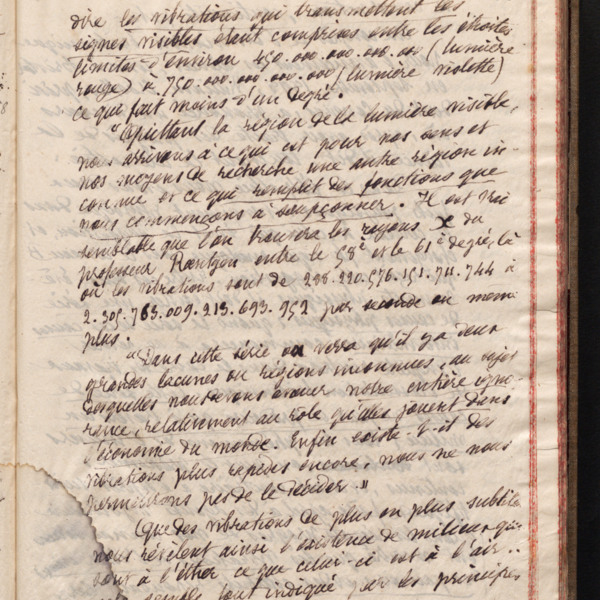 dire les vibrations qui transmettent les
signes visibles étant comprises entre les étroites
limites d'environ 450.000.000.000.000 (lumière
rouge) à 750.000.000.000.000 (lumière violette)
ce qui fait moins d'un degré.
"Quittant la région de la lumière visible,
nous arrivons à ce qui est pour nos sens et
nos moyens de recherche une autre région in-
connue et ce qui remplit des fonctions que
nous commençons à soupçonner. Il est vrai
semblable que l'on trouvera les rayons X du
professeur Rœntgen entre le 58e et le 61e degré, là
où les vibrations sont de 288.220.576.151.711.744 à
2.305.763.009.213.693.952 par seconde ou même
plus.
"Dans cette série on verra qu'il y a deux
grandes lacunes ou régions inconnues, au sujet
desquelles nous devons avouer notre entière igno-
rance, relativement au rôle qu'elles jouent dans
l'économie du monde. Enfin existe-t-il des
vibrations plus rapides encore, nous ne nous
permettrons pas de le décider."
Que des vibrations de plus en plus subtiles
nous révèlent ainsi l'existence de milieux qui
sont à l'éther ce que celui-ci est à l'air..
semble tout indiqué par les principes